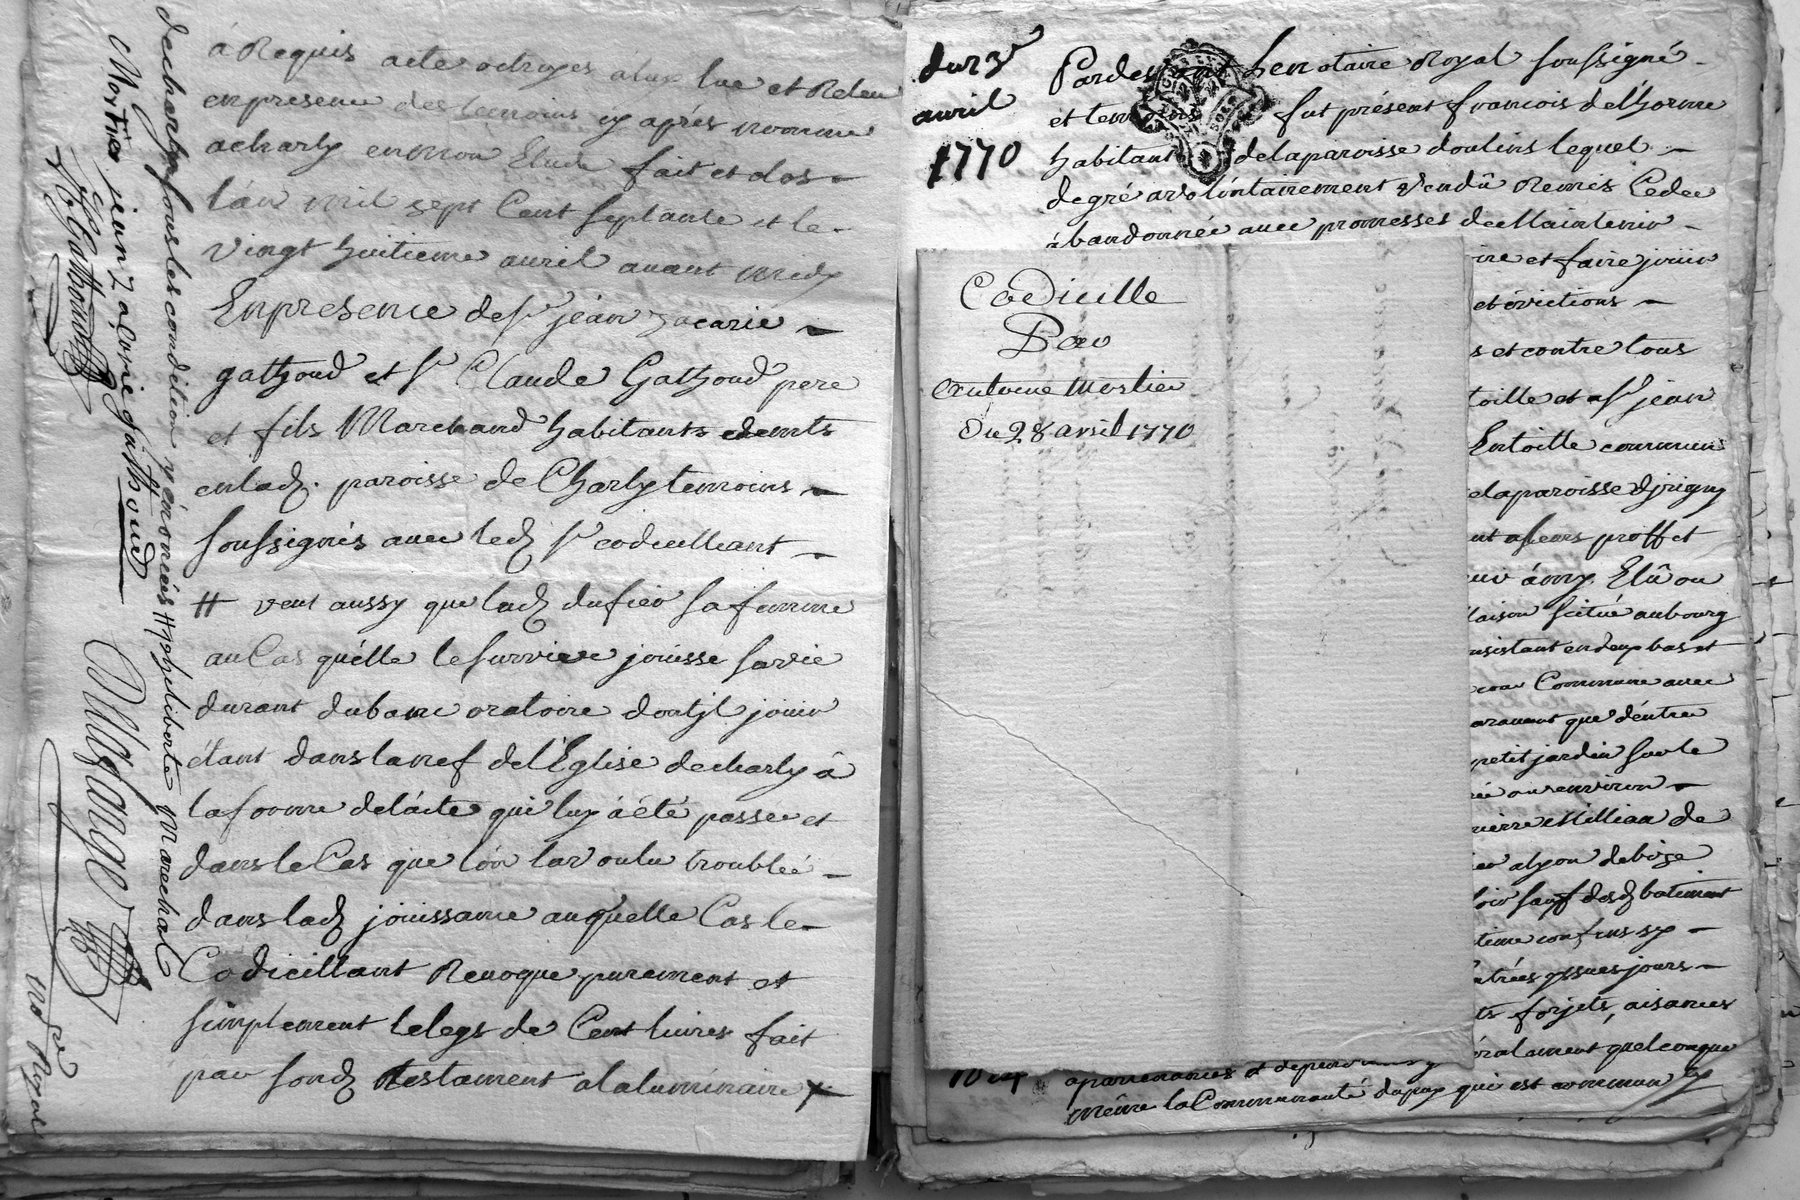 á Requis acte octroyes aluy lue et Releu
en presence des temoins cy aprés nommé
a charly en mon Etude fait et clos
l'an mil sept Cent septante et le
vingt huitieme avril avant midy
En presence de sr jean zacarie
gathoud et sr Claude Gathoud pere
et fils Marchand habitants
en lad. paroisse de Charly temoins
soussignés avec led sr codicillant
# veut aussy que lad dufier sa femme
au Cas quélle le survive jouisse sa vie
durant du banc oratoire dont jl jouir
étant dans la nef de l'Eglise de charly á
la forme de lácte qui luy á été passé et
dans le Cas que lón la voulu troublée
dans lad jouissance auquelle Cas le
Codicillant Revoque purement et
simplement le legs de Cent livres fait
par sond testament a la luminaire
de charly sous les condition y énoncées # philiberte Marechal
Mortier jean zacarie gathoud
C Gathoud
Dugange
no re Royal
du 23
avril
1770
Pardevant le notaire Royal soussigné
et temoins fut présent francois delhorme
habitant de la paroisse doulins lequel
de gré a volontairement vendû Remis Cedée
ábandonnée avec promesses de Maintenir
ire et faire jouir
et évictions
s et contre tous
toille et sr jean
Entoille commun
de la paroisse djrigny
nt a leurs proffet
ámy Elû ou
Maison scitué au bourg
nsistant en deux bas et
Cour Commune avec
aravent que déntre
petit jardin sur le
ée ou environ
pierre Milliaa de
alyon de bize
soir sauf desd batiment
time confins sy
ntrées yssues jours
ts forjets, aisances
éralament quelconque
apartenances et dependances
même la Communauté du puy qui est commun
Codicille
Par
Antoine Mortier
Du 28 avril 1770